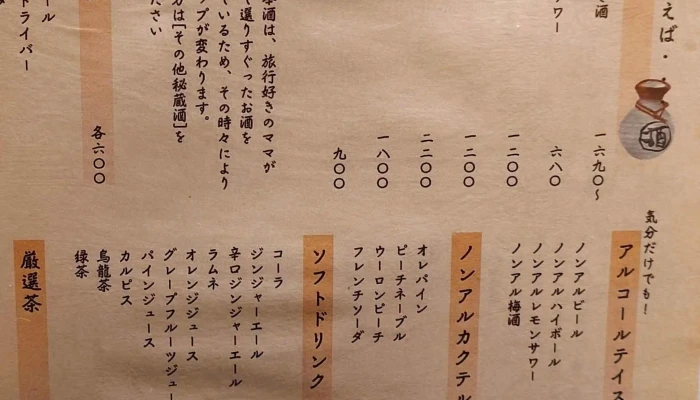 えば・・
酒
酒
ワー
一六九〇〜
六八〇
一二〇〇
一二〇〇
二二〇〇
一八〇〇
九〇〇
酒は、旅行好きのママが
選りすぐったお酒を
いるため、その時々により
ップが変わります。
方は[その他秘蔵酒]を
ださい
各六〇〇
ール
ドライバー
気分だけでも!
アルコールテイス
ノンアルビール
ノンアルハイボール
ノンアルレモンサワー
ノンアル梅酒
ノンアルカクテル
オレパイン
ピーチネーブル
ウーロンピーチ
フレンチソーダ
ソフトドリンク
コーラ
ジンジャーエール
辛口ジンジャーエール
ラムネ
オレンジジュース
グレープフルーツジュー
パインジュース
カルピス
烏龍茶
緑茶
厳選茶